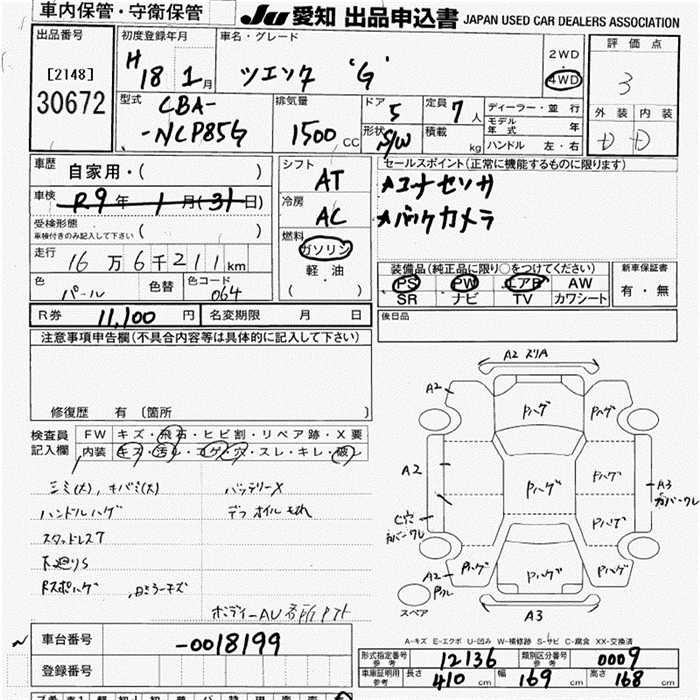 車内保管・守衛保管
JU 愛知 出品申込書 JAPAN USED CAR DEALERS ASSOCIATION
出品番号
[2148]
30672
初度登録年月
H 18 1月
車名・グレード
ツエンタ 'G'
2WD
4WD
評価点
3
外装 内装
D D
型式
CBA-
-NCP85G
排気量
1500 CC
ドア 5
形状 S/W
定員 7人
積載 kg
ディーラー・並行
モデル年式 年
ハンドル 左・右
車歴 自家用・( )
車検 R9年1月(31日)
受検形態
車検付きのみ記入して下さい ( )
走行 16万6千211km
色 パール 色替
色コード 064
シフト AT
冷房 AC
燃料 ガソリン
軽油
( )
セールスポイント(正常に機能するものに限ります)
*コーナーセンサ
*バックカメラ
装備品(純正品に限り○をつけてください)
PS PW エアB AW
SR ナビ TV カワシート
新車保証書
有・無
R券 11,100円 名変期限 月 日
後日品
注意事項申告欄(不具合内容等は具体的に記入して下さい)
修復歴 有 〔箇所 〕
検査員記入欄
FW キズ・飛石・ヒビ割・リペア跡・X要
内装 キズ・汚レ・コゲ・穴・スレ・キレ・破レ
シミ(大), キバミ(大)
バッテリーX
ハンドルハゲ
デフ オイルもれ
スタッドレス7
下廻りS
RスポハゲPハゲ
ボディーAU
A2 スリA
A2
Pハゲ
Pハゲ
A2
Pハゲ
Pハゲ
A3
カバーワレ
C穴
カバーワレ
Pハゲ
A2
Pハゲ
Pハゲ
Pハゲ
スペア
A3
A-キズ E-エクボ U-凹み W-補修跡 S-サビ C-腐食 XX-交換済
車台番号 -0018199
登録番号
型式指定番号 参考 12136
類別区分番号 参考 0009
車庫証明用 参考 長さ 410cm 幅 169cm 高さ 168cm